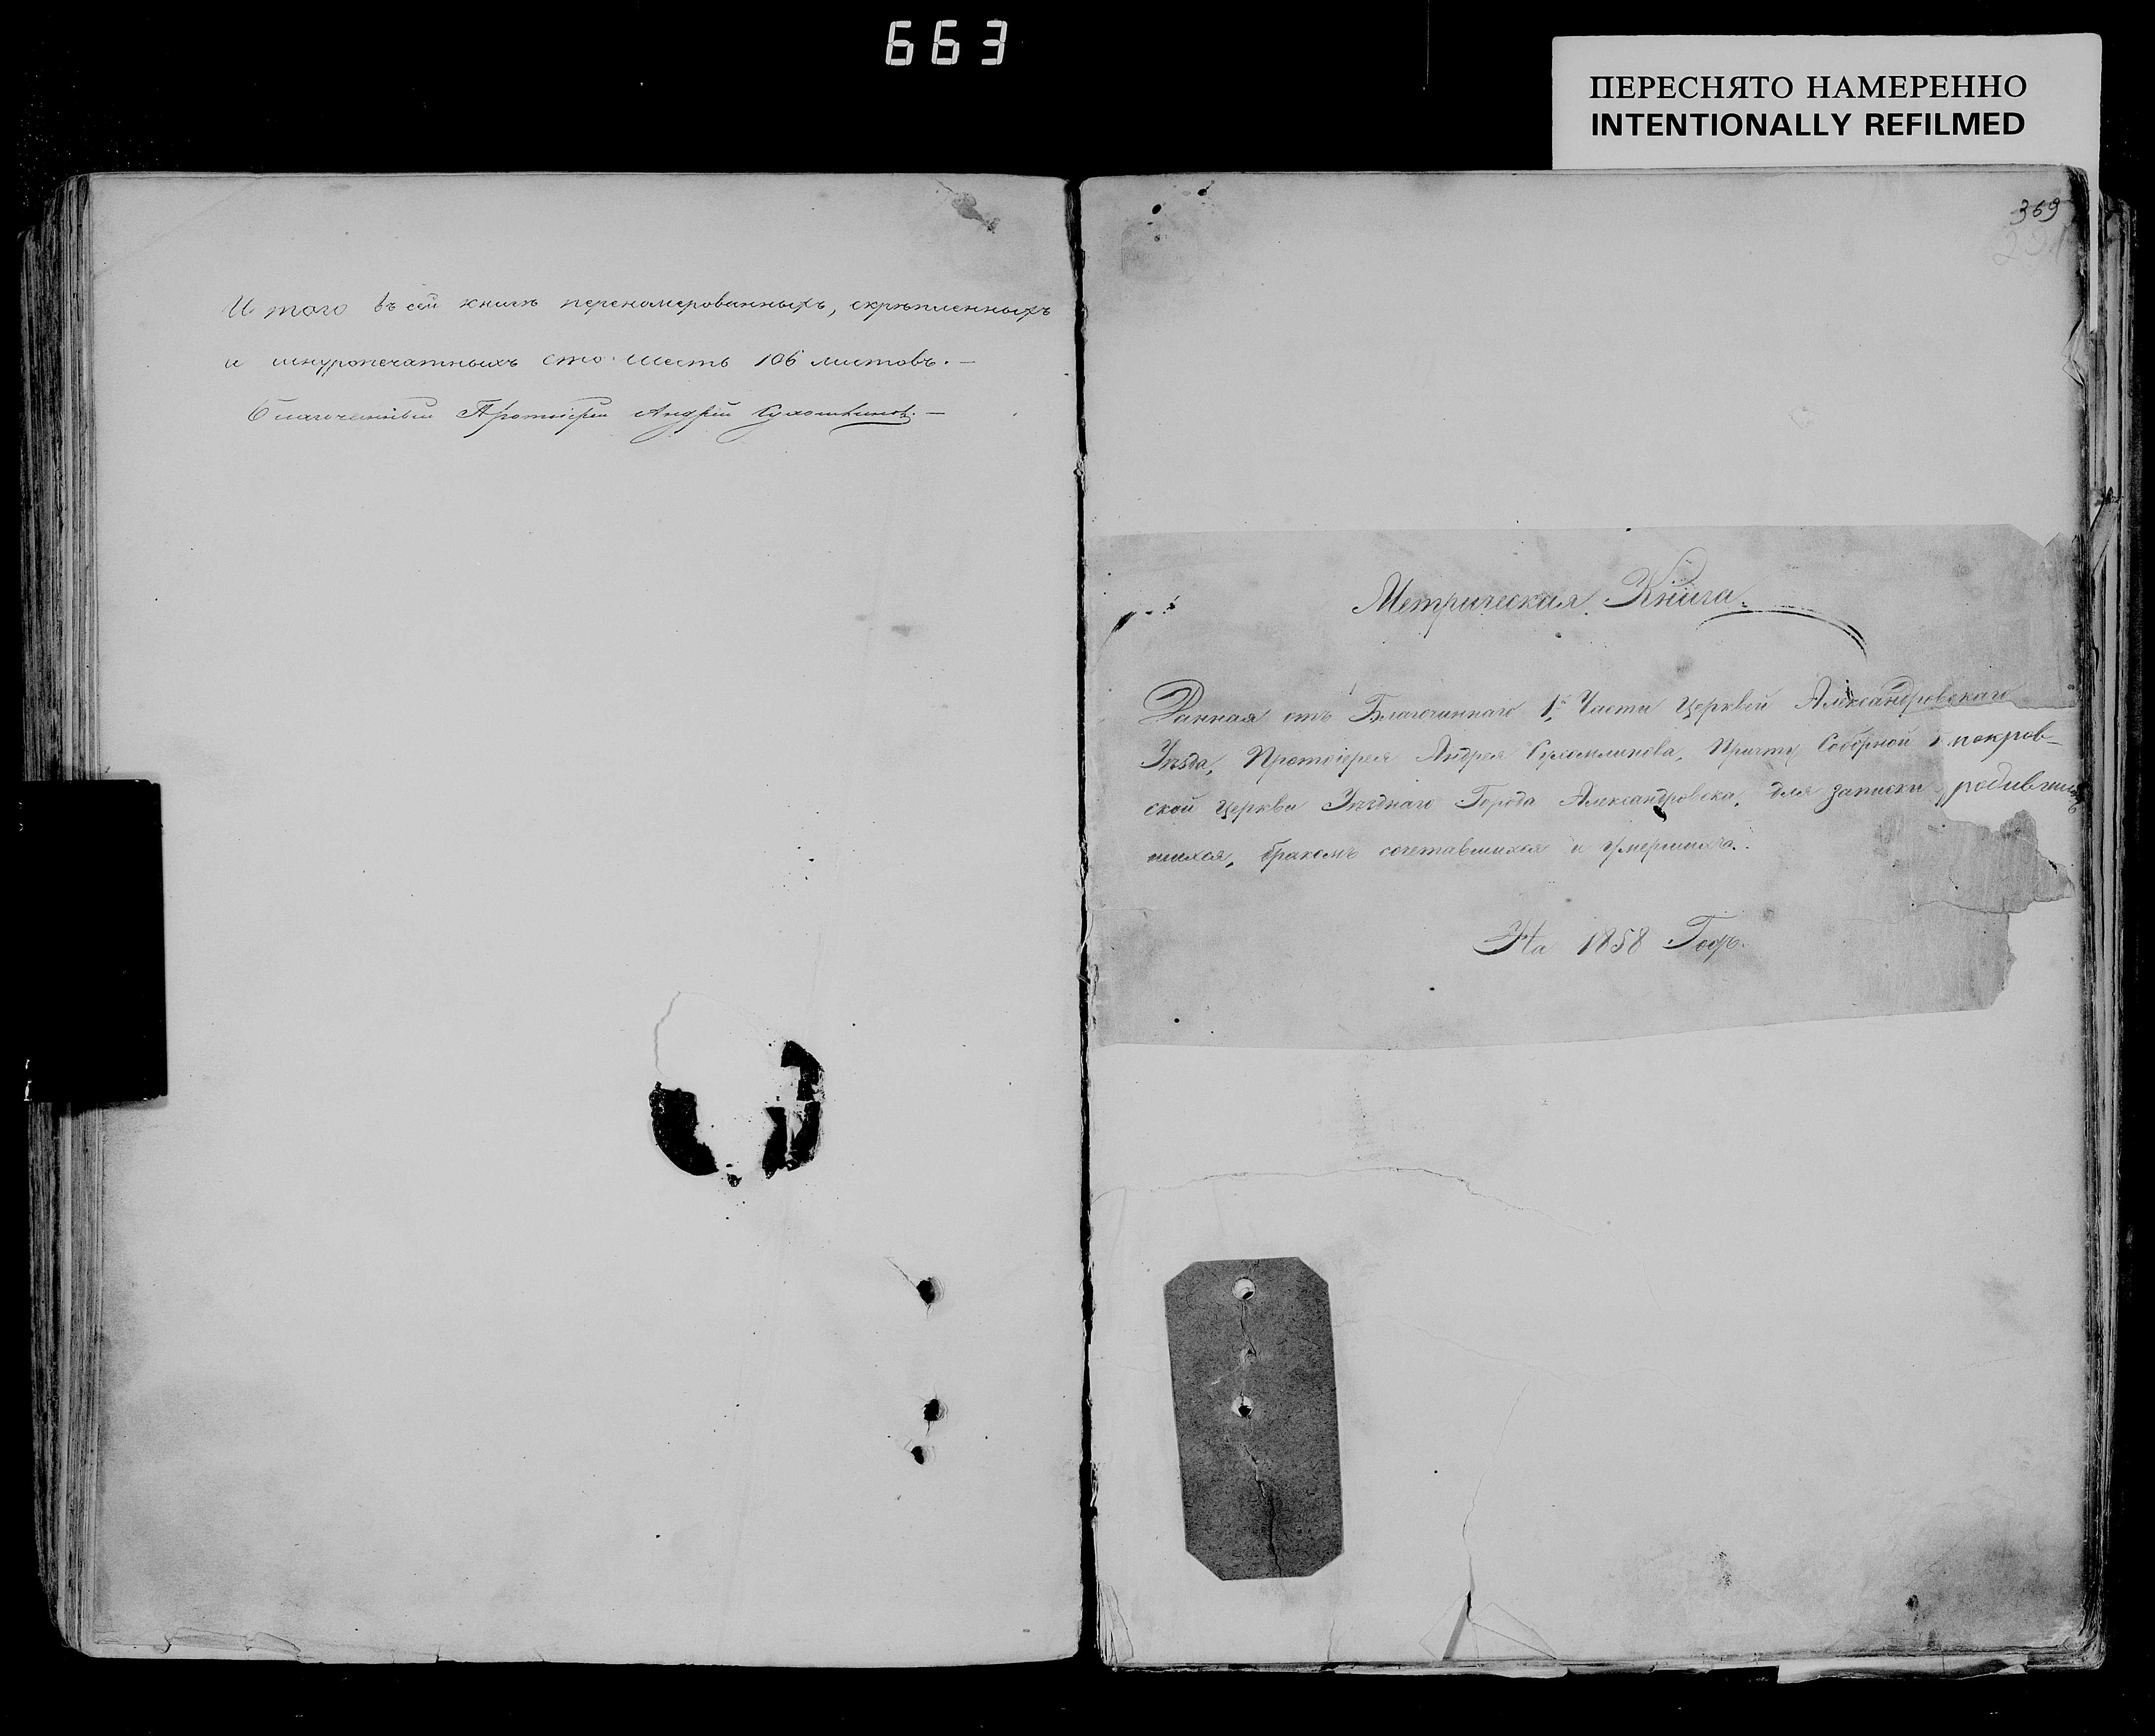 663
ПЕРЕСНЯТО НАМЕРЕННО
INTENTIONALLY REFILMED
И того въ сей книгѣ перенумерованныхъ, скрѣпленныхъ
и шнуропечатныхъ сто шесть 106 листовъ. —
Благочинный Протоіерей Андрей Сухомлиновъ. —
369
Метрическая Книга.
Данная отъ Благочиннаго 1й Части Церквей Александровскаго
Уѣзда, Протоіерея Андрея Сухомлинова, Причту Соборной покров-
ской Церкви Уѣзднаго Города Александровска, для записки родив
шихся, бракомъ сочетавшихся и умершихъ.
На 1858 Годъ.